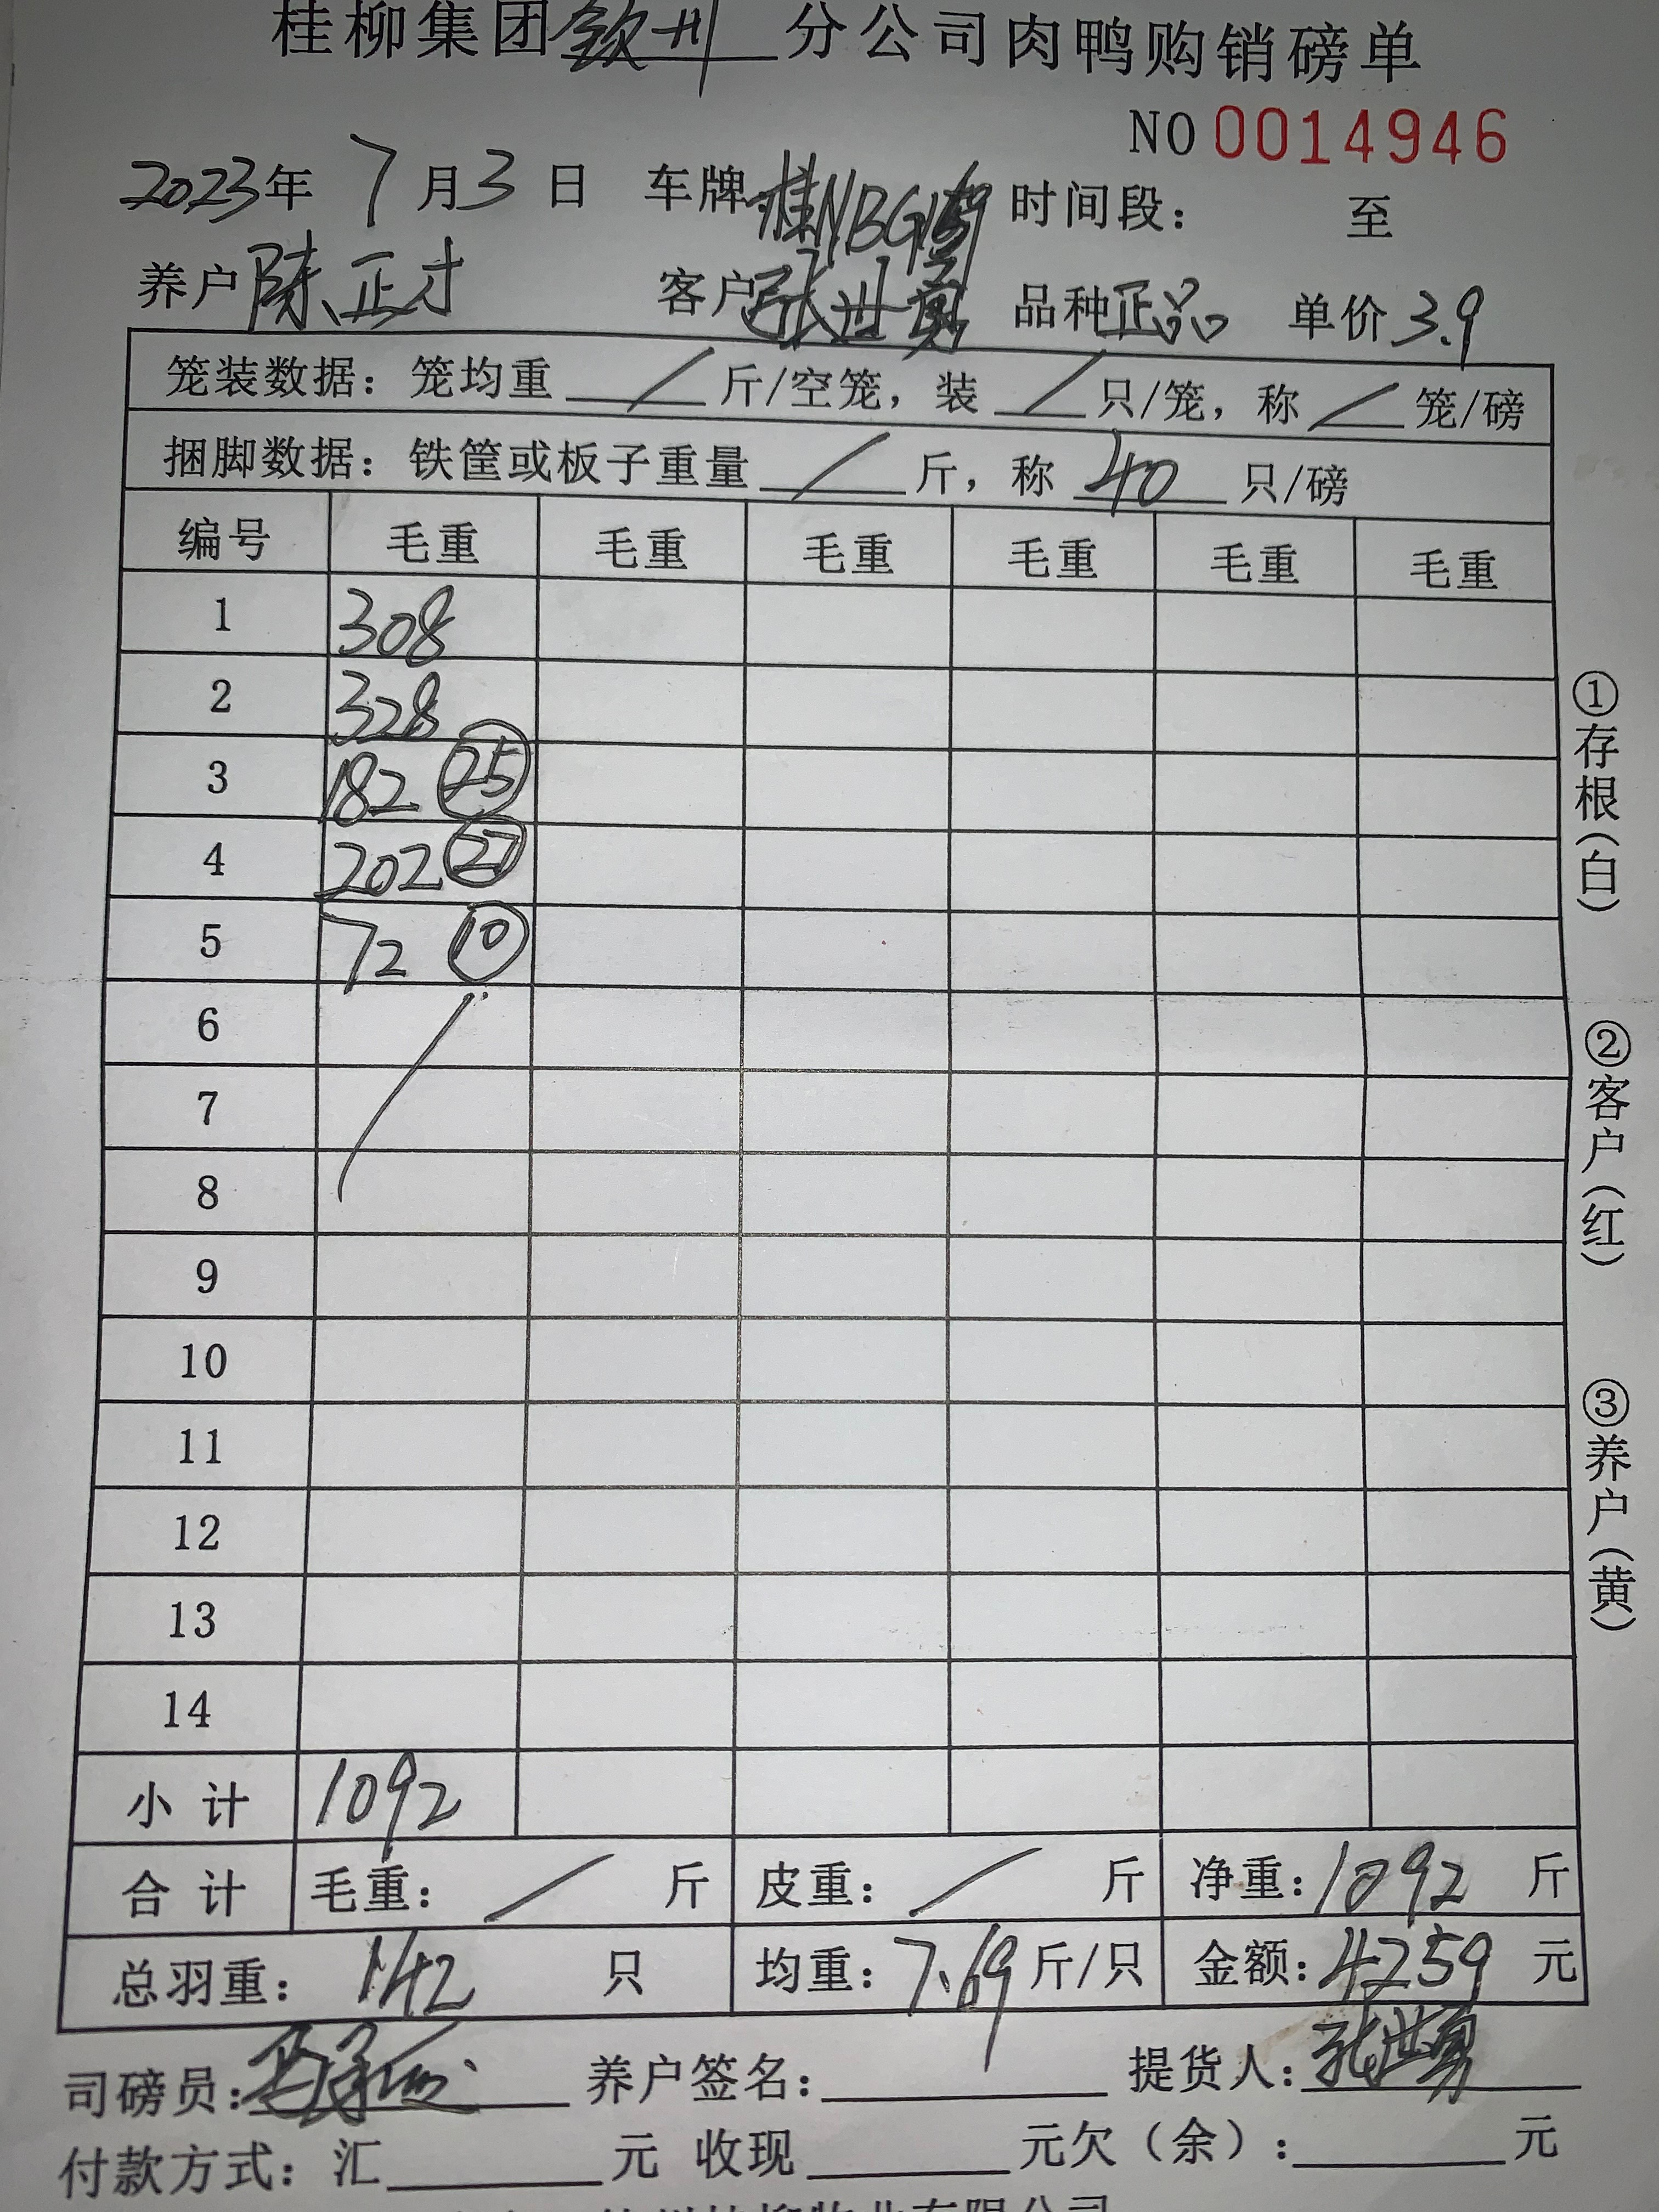 桂柳集团钦州分公司肉鸭购销磅单
NO 0014946
2023年 7月3日 车牌:桂NBG 时间段: 至
养户 陈正才 客户 张世勇 品种 正品 单价 3.9
笼装数据: 笼均重 / 斤/空笼, 装 / 只/笼, 称 / 笼/磅
捆脚数据: 铁筐或板子重量 / 斤, 称 40 只/磅
编号 毛重 毛重 毛重 毛重 毛重 毛重
1 308
2 328
3 182 ㉕
4 202 ㉗
5 72 ⑩
6
7
8
9
10
11
12
13
14
小计 1092
合计 毛重: / 斤 皮重: / 斤 净重: 1092 斤
总羽重: 142 只 均重: 7.69 斤/只 金额: 4259 元
司磅员: 养户签名: 提货人: 张世勇
付款方式: 汇 元 收现 元欠(余): 元
①存根(白)
②客户(红)
③养户(黄)